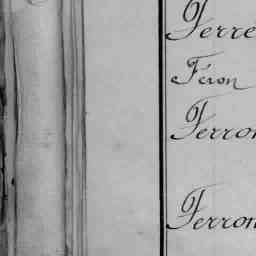 Ferre
Féron
Ferron
Ferron